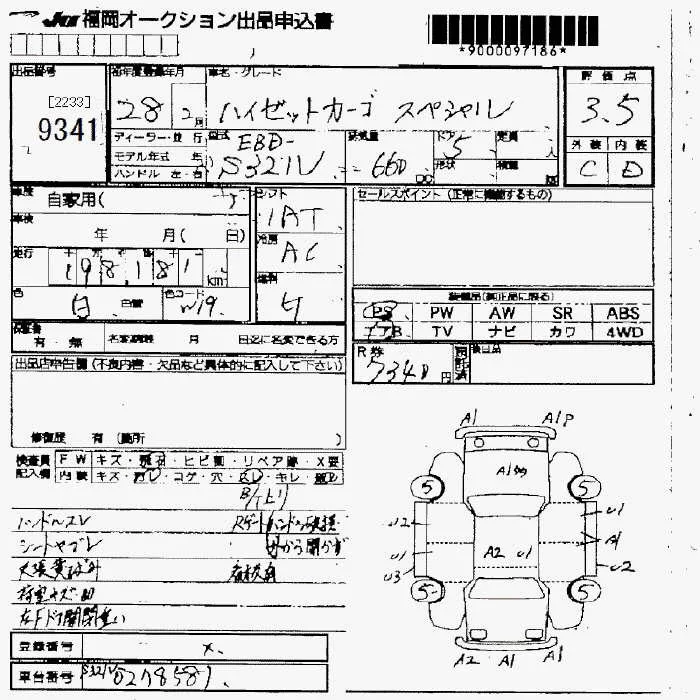 JU 福岡オークション出品申込書
*9000097186*
出品番号 初年度登録年月 車名・グレード 評価点
[2233]
9341
28 2月 ハイゼットカーゴ スペシャル 3.5
ディーラー・並行 型式 排気量 ドア 定員 外装 内装
モデル年式 年 EBD- 5 人
ハンドル 左・右 S321V 660 CC 形状 積載 C D
車歴 自家用( シフト セールスポイント(正常に機能するもの)
車検 1AT
年 月( 日) 冷房
走行 AC
198,181 km 燃料
色 色コード ガ 装備品(純正品に限る)
白 W19 PS PW AW SR ABS
保証書 エアB TV ナビ カワ 4WD
有・無 名変期限 月 日迄に名変できる方 R券 後日品
7340円
出品店申告欄(不良内容・欠品など具体的に記入して下さい)
修復歴 有(箇所 )
検査員 FW キズ・飛石・ヒビ割・リペア跡・X要
記入欄 内装 キズ・汚レ・コゲ・穴・スレ・キレ・
ハンドルスレ Rゲートハンドル破損
シートヤブレ 内から開かず
荷室キズ・凹
左Fドア開閉重い
A1 A1P
5 5
U2 U1
A1
U1 A2 U1
U3 U2
5 5
A2 A1 A1
登録番号 x.
車台番号 S321V 0278581